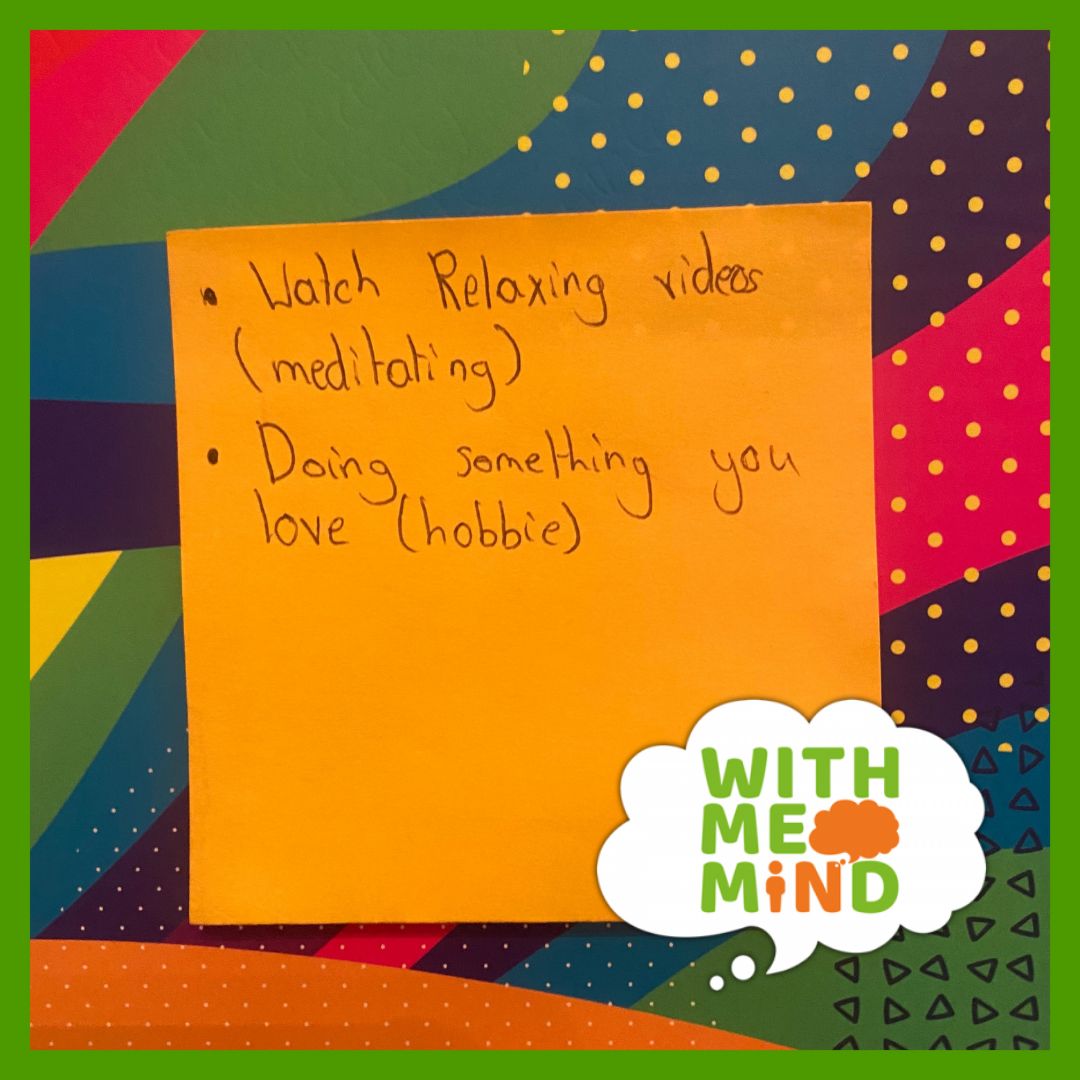 • Watch Relaxing videos
(meditating)
• Doing something you
love (hobbie)
WITH
ME
MiND